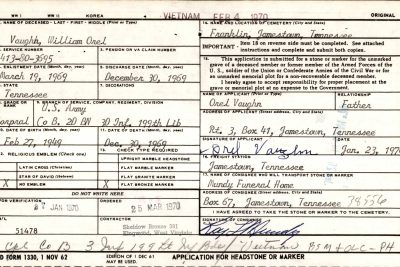 WW I WW II KOREA VIETNAM FEB 4 1970 ORIGINAL
1. NAME OF DECEASED - LAST - FIRST - MIDDLE (Print or Type)
Vaughn, William Orel
14. NAME AND LOCATION OF CEMETERY (City and State)
Franklin, Jamestown, Tennessee
SERVICE NUMBER
3. PENSION OR VA CLAIM NUMBER
413-80-3695
Item 18 on reverse side must be completed. See attached
instructions and complete and submit both copies.
ENLISTMENT DATE (Month, day, year)
DISCHARGE DATE (Month, day, year)
March 19, 1969
December 30, 1969
This application is submitted for a stone or marker for the unmarked
grave of a deceased member or former member of the Armed Forces of the
U.S., soldier of the Union or Confederate Armies of the Civil War or for
an unmarked memorial plot for a non-recoverable deceased member.
I hereby agree to accept responsibility for proper placement at the
grave or memorial plot at no expense to the Government.
STATE
7. DECORATIONS
Tennessee
Orel Vaughn
RELATIONSHIP
Father
GRADE
9. BRANCH OF SERVICE, COMPANY, REGIMENT, DIVISION
U.S. Army
Corporal Co B. 2D BN 30 Inf. 199th Lib
Rt. 3, Box 41, Jamestown, Tennessee
DATE OF BIRTH (Month, day, year)
11. DATE OF DEATH (Month, day, year)
Feb 27, 1949
Dec. 30, 1969
SIGNATURE OF APPLICANT
DATE
Orel Vaughn
Jan 23, 1970
RELIGIOUS EMBLEM (Check one)
CHECK TYPE REQUIRED
LATIN CROSS (Christian)
UPRIGHT MARBLE HEADSTONE
FLAT MARBLE MARKER
STAR OF DAVID
FLAT GRANITE MARKER
X NO EMBLEM
X FLAT BRONZE MARKER
16. FREIGHT STATION
Jamestown, Tennessee
NAME OF CONSIGNEE WHO WILL TRANSPORT STONE OR MARKER
Mundy Funeral Home
DO NOT WRITE HERE
FOR VERIFICATION
ORDERED
27 JAN 1970
25 MAR 1970
ADDRESS OF CONSIGNEE (Street address, City and State)
Box 67, Jamestown, Tennessee 38556
I HAVE AGREED TO TAKE THE STONE OR MARKER TO CEMETERY.
51478
Kingwood, West Virginia
SIGNATURE OF CONSIGNEE
Cpl Co B 3 Inf 199 Lt Inf Bde Vietnam BSM & OLC - PH
FORM 1330, 1 NOV 62
EDITION OF 1 DEC 61
APPLICATION FOR HEADSTONE OR MARKER